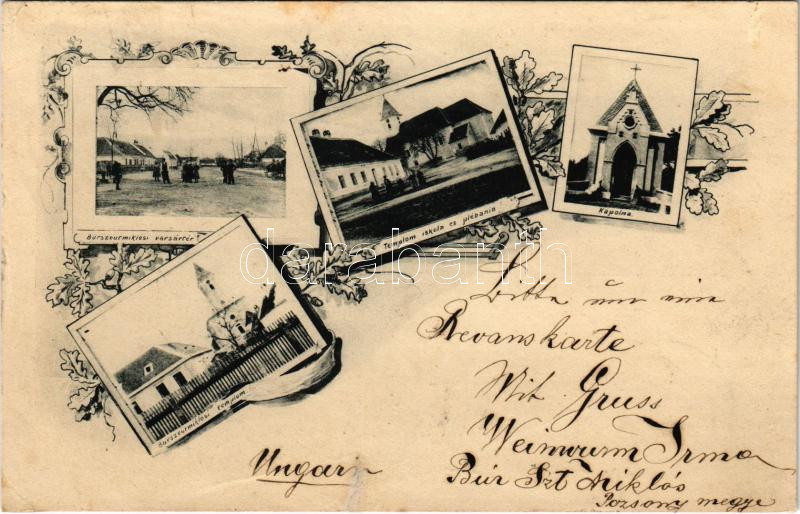 Búrszentmiklosi vársártér
Templom iskola és plébánia
Kápolna
Búrszentmiklosi templom
darabanth
Bitte um eine
Revanskarte
Mit Gruss
Weinwurm Irma
Búr Szt Miklós
Pozsony megye
Ungarn